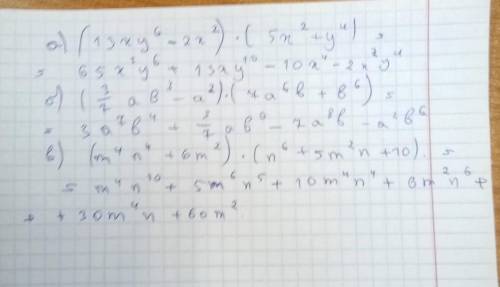 а) (13xy⁶ - 2x²) · (5x² + y⁴) =
= 65x³y⁶ + 13xy¹⁰ - 10x⁴ - 2x²y⁴
б) (3/7 ab³ - a²) · (7a⁶b + b⁶) =
= 3a⁷b⁴ + 3/7 ab⁹ - 7a⁸b - a²b⁶
в) (m⁴n⁴ + 6m²) · (n⁶ + 5m²n + 10) =
= m⁴n¹⁰ + 5m⁶n⁵ + 10m⁴n⁴ + 6m²n⁶ +
+ +30m⁴n + 60m²